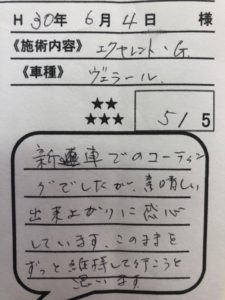 H 30年 6月 4日 様
《施術内容》 エクセレント・G.
《車種》 ヴェラール.
★★
★★★
5/5
新車でのコーティン
グでしたが、素晴しい
出来上がりに感心
しています。このままを
ずっと維持して行こうと
思います